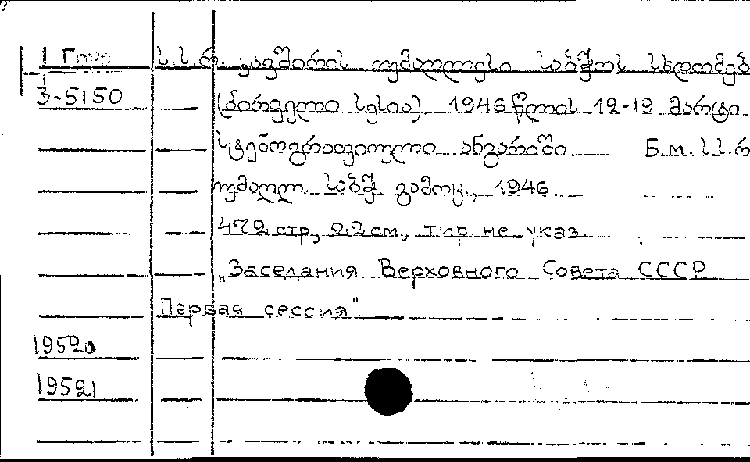 ს.ს.რ. კავშირის უმაღლესი საბჭოს სხდომებ
3-5150 (პირველი სესია). 1946 წლის 12-19 მარტი.
სტენოგრაფიული ანგარიში Б.მ. ს.ს.რ
უმაღლ. საბჭ გამოც., 1946
472 стр, 22 см., тир не указ.
„Заседания Верховного Совета СССР
Первая сессия"
19520
19521